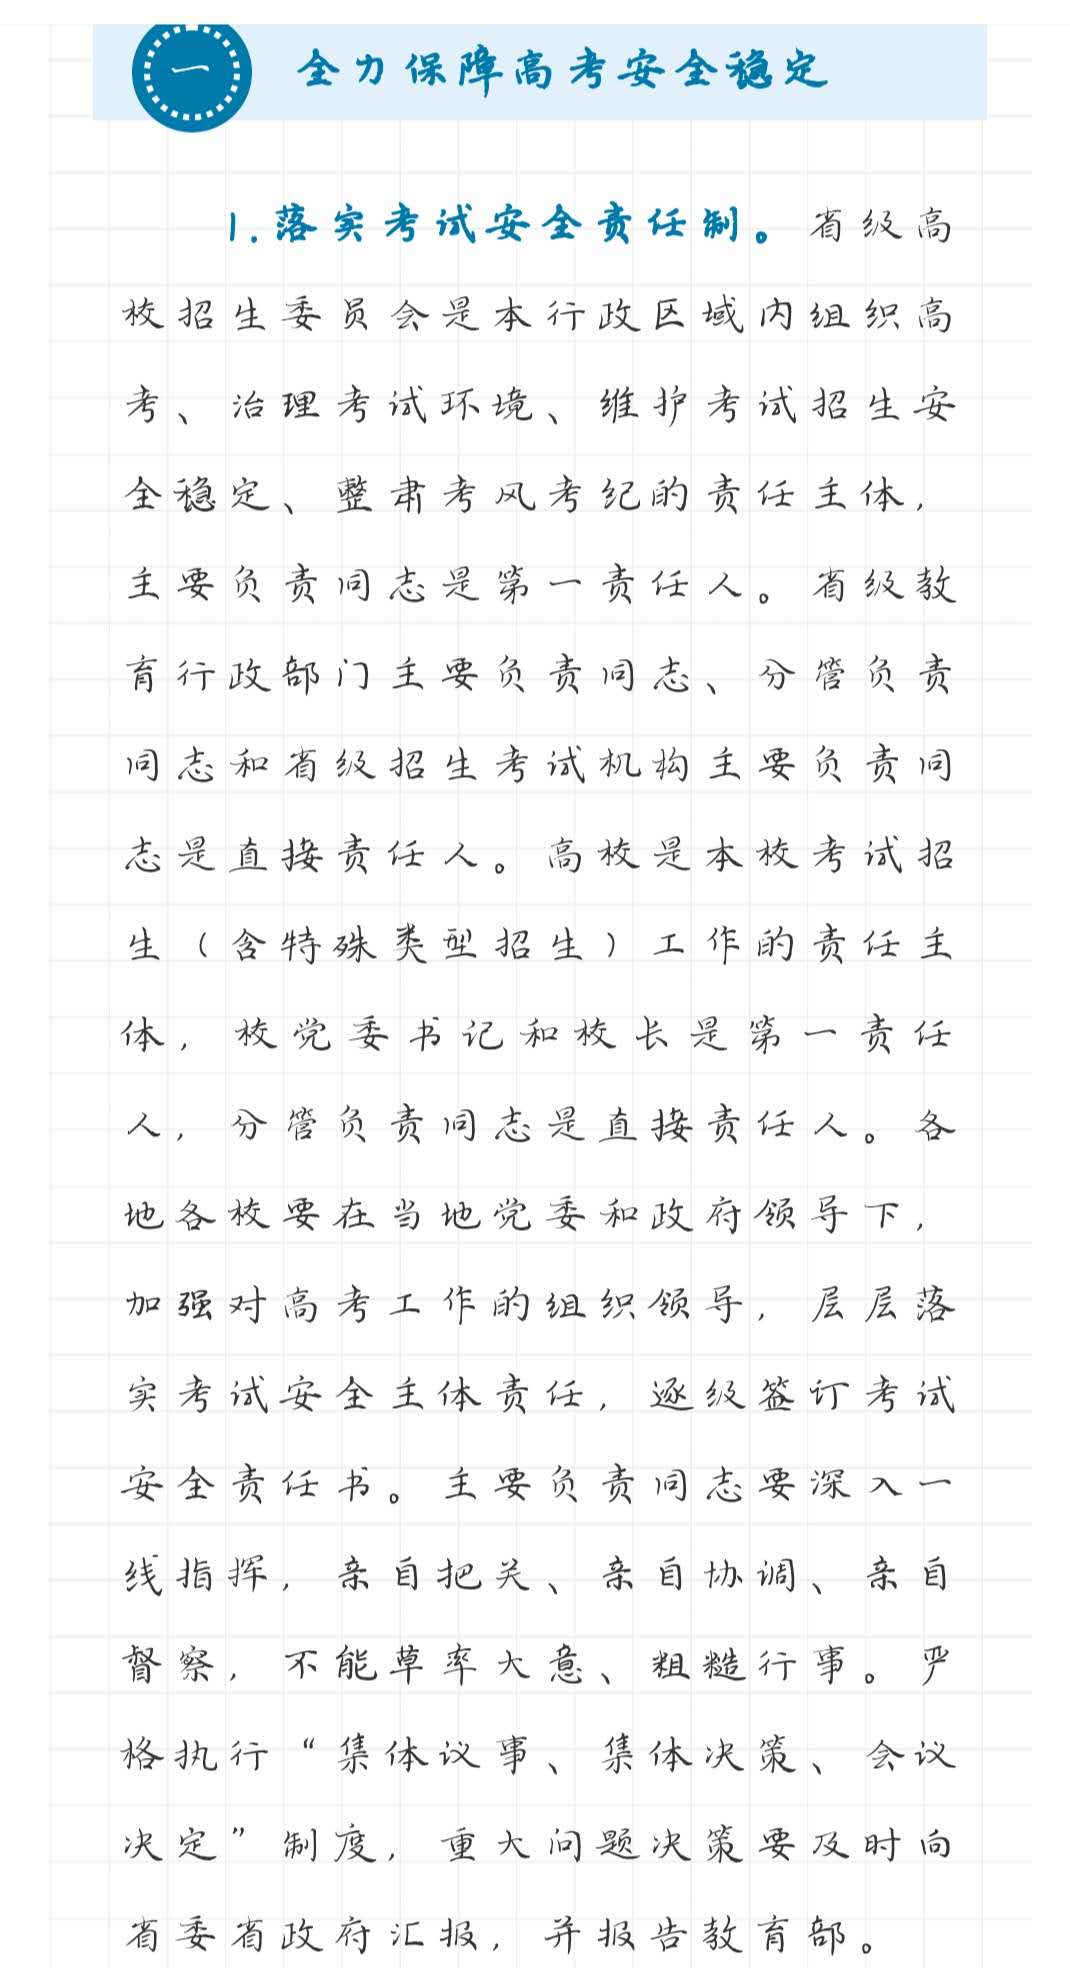 一 全力保障高考安全稳定
1.落实考试安全责任制。省级高
校招生委员会是本行政区域内组织高
考、治理考试环境、维护考试招生安
全稳定、整肃考风考纪的责任主体，
主要负责同志是第一责任人。省级教
育行政部门主要负责同志、分管负责
同志和省级招生考试机构主要负责同
志是直接责任人。高校是本校考试招
生（含特殊类型招生）工作的责任主
体，校党委书记和校长是第一责任
人，分管负责同志是直接责任人。各
地各校要在当地党委和政府领导下，
加强对高考工作的组织领导，层层落
实考试安全主体责任，逐级签订考试
安全责任书。主要负责同志要深入一
线指挥，亲自把关、亲自协调、亲自
督察，不能草率大意、粗糙行事。严
格执行“集体议事、集体决策、会议
决定”制度，重大问题决策要及时向
省委省政府汇报，并报告教育部。